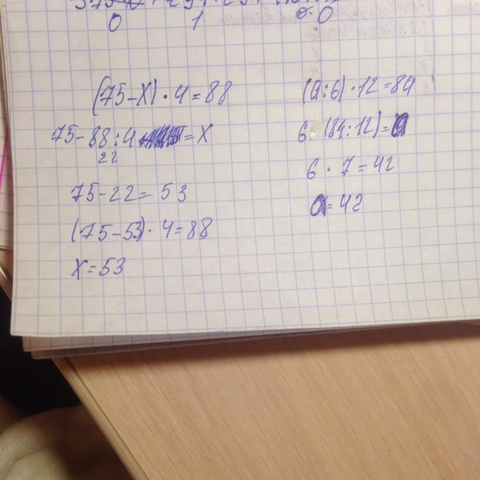 0 1 0
(75-x)·4=88
75-88:4=x
22
75-22=53
(75-53)·4=88
x=53
(a:6)·12=84
6·(84:12)=a
6·7=42
a=42